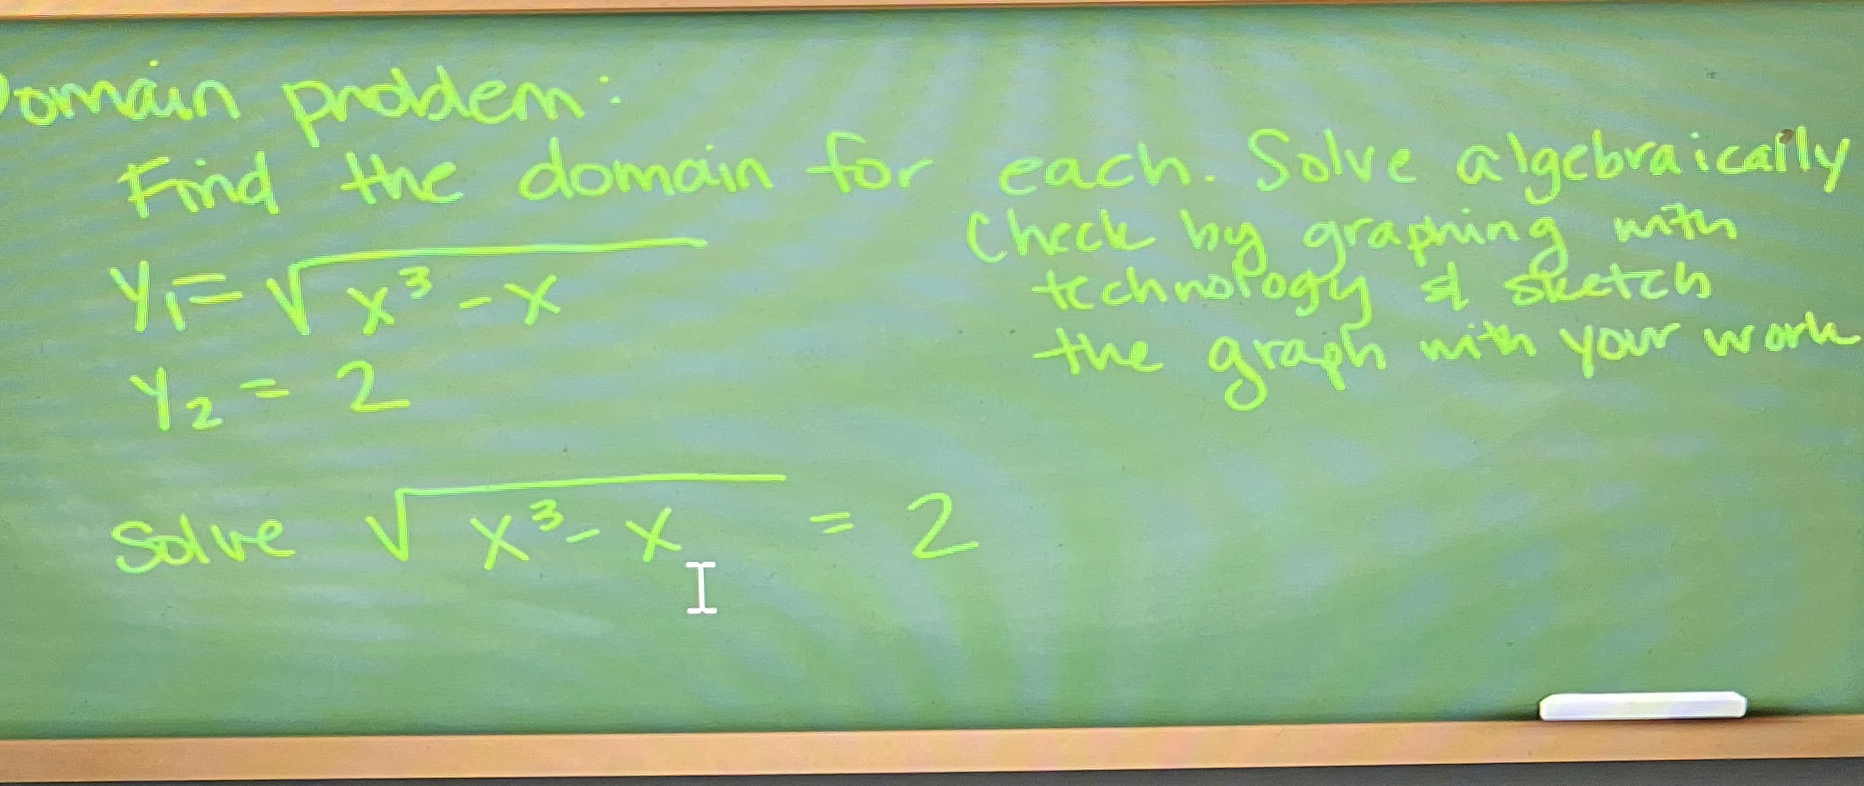 Domain problem:
Find the domain for each. Solve algebraically
Check by graphing with
technology & sketch
the graph with your work
y₁ = √(x³ - x)
y₂ = 2
Solve √(x³ - x) = 2